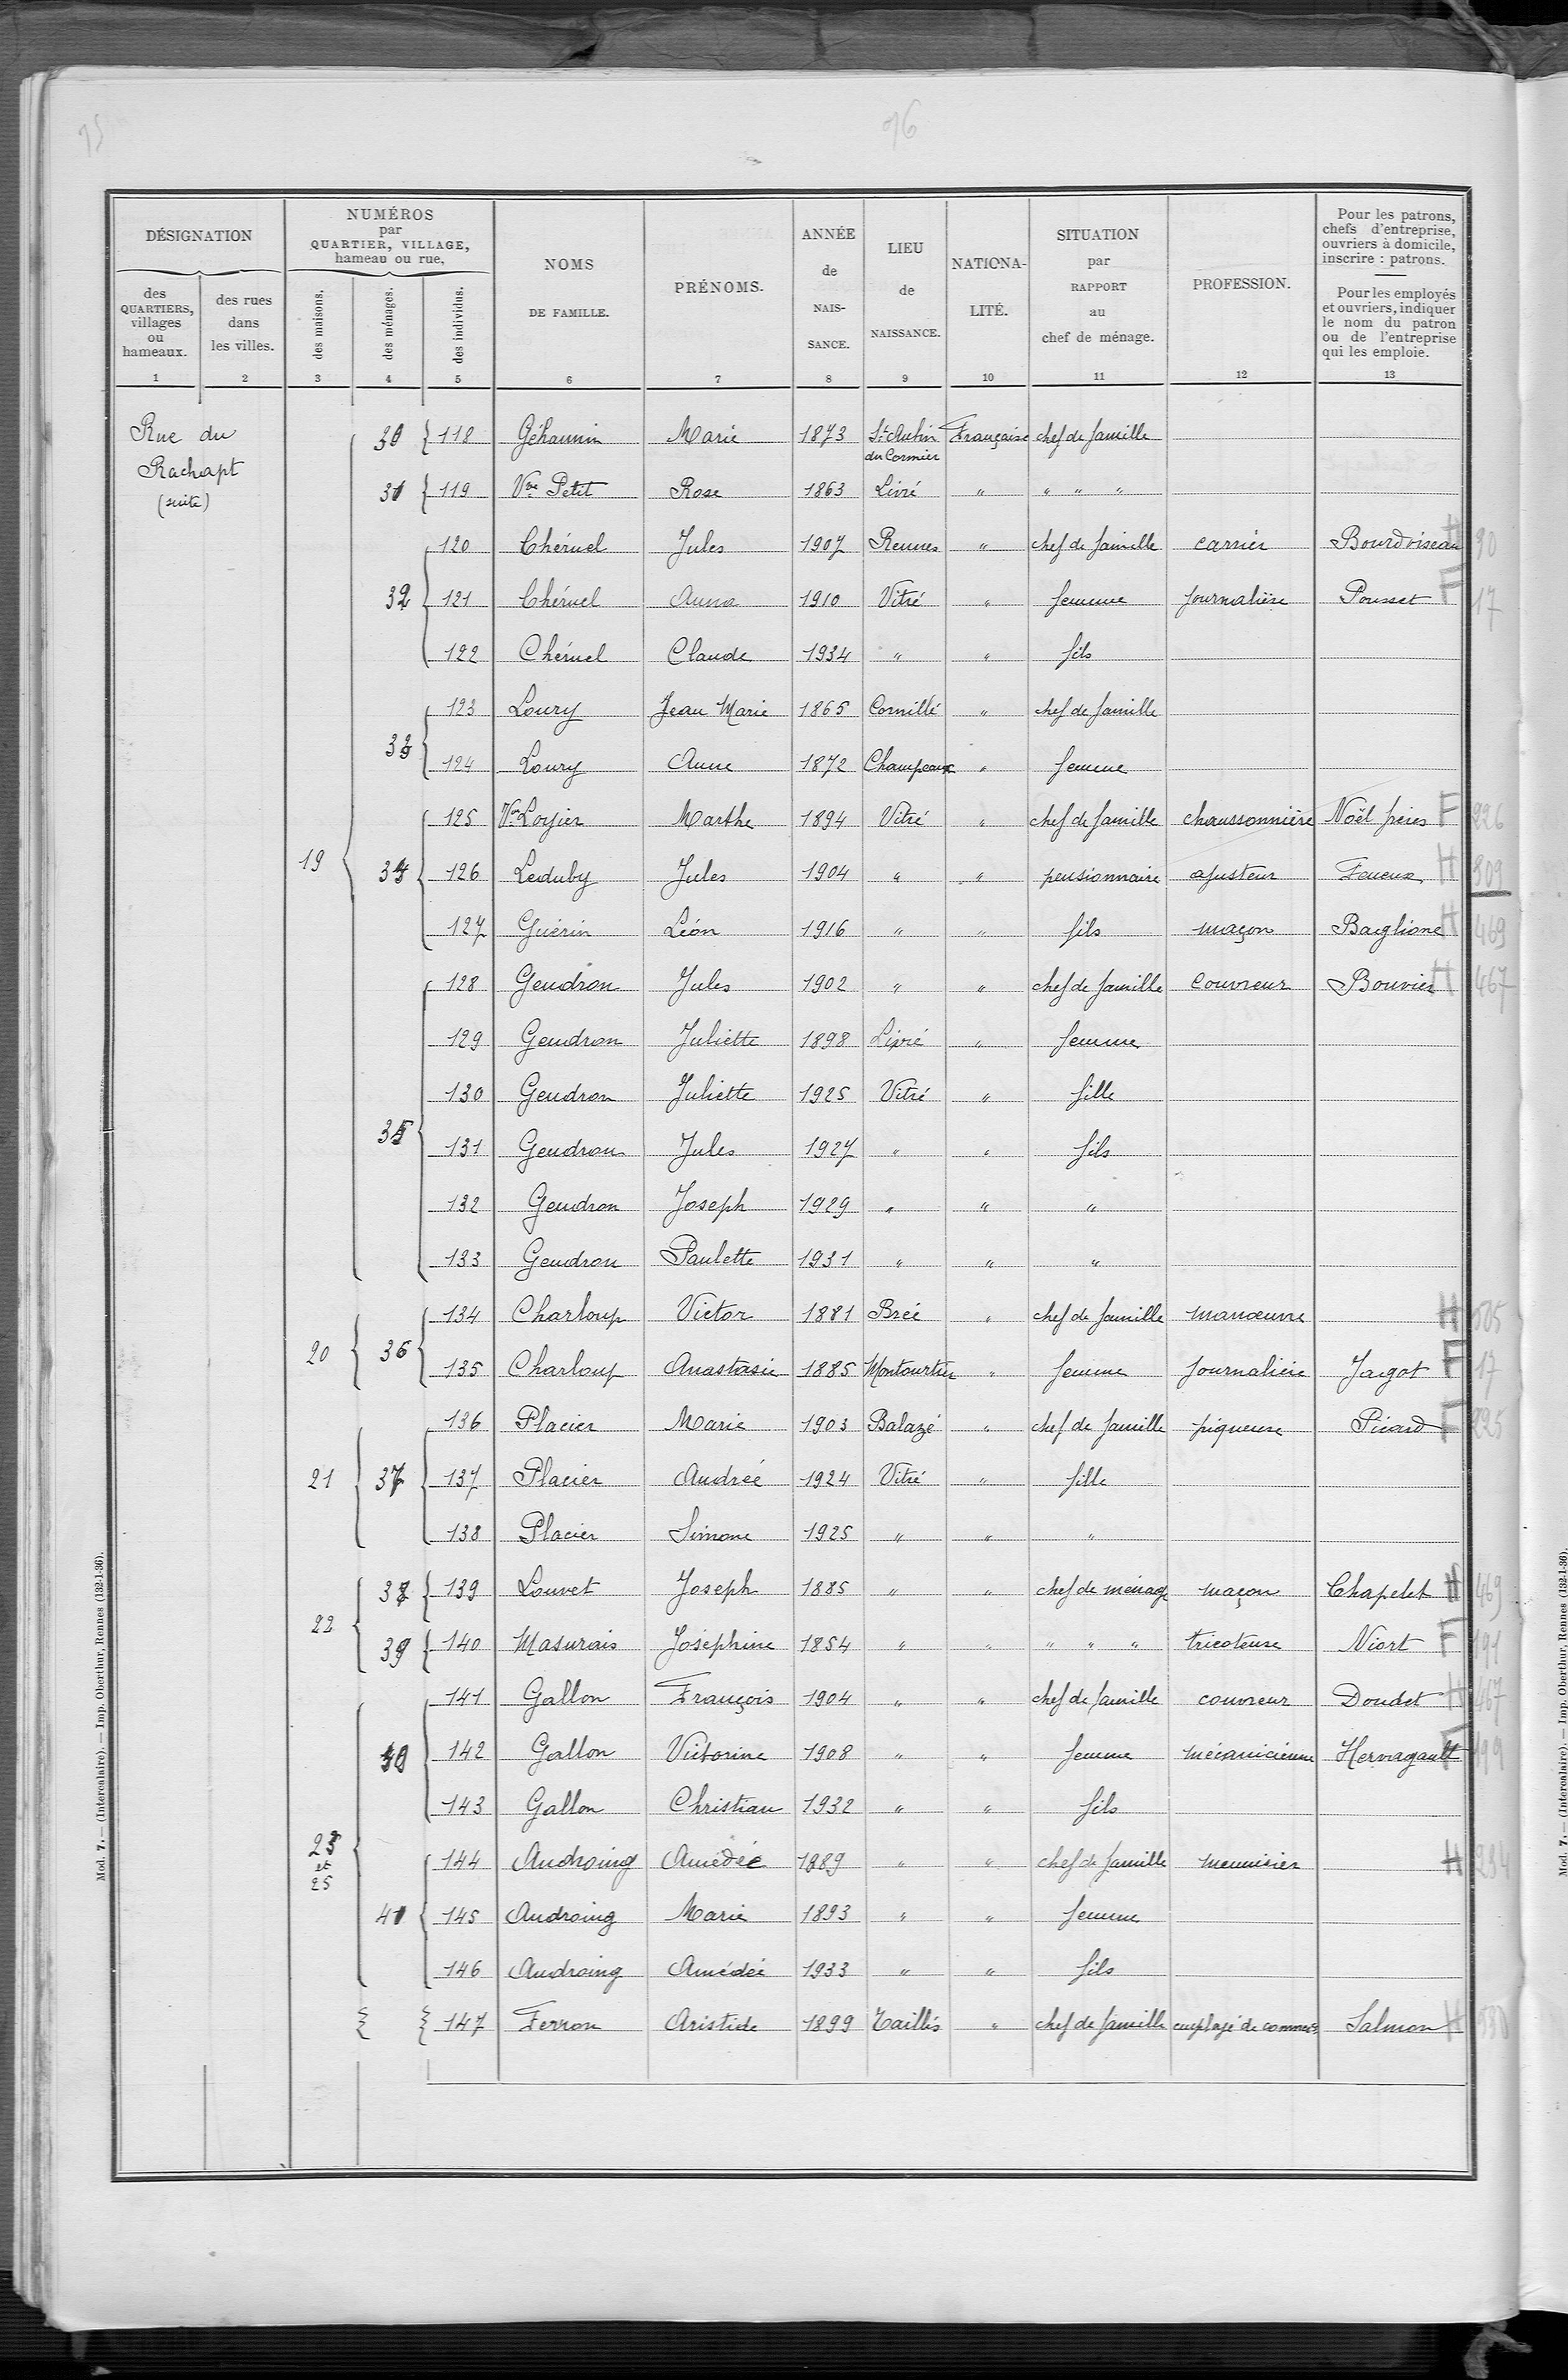 96
DÉSIGNATION
NUMÉROS
par
QUARTIER, VILLAGE,
hameau ou rue.
NOMS
DE FAMILLE.
PRÉNOMS.
ANNÉE
de
NAIS-
SANCE.
LIEU
de
NAISSANCE.
NATIONA-
LITÉ.
SITUATION
par
RAPPORT
au
chef de ménage.
PROFESSION.
Pour les patrons,
chefs d'entreprise,
ouvriers à domicile,
inscrire : patrons.
Pour les employés
et ouvriers, indiquer
le nom du patron
ou de l'entreprise
qui les emploie.
des
QUARTIERS,
villages
ou
hameaux.
des rues
dans
les villes.
des maisons.
des ménages.
des individus.
1 2 3 4 5 6 7 8 9 10 11 12 13
Rue du
Rachapt
(suite)
30 118 Géhannin Marie 1873 St Aubin du Cormier Française chef de famille
31 119 Vve Petit Rose 1863 Livré " " " "
120 Chéruel Jules 1907 Rennes " chef de famille carrier Bourdoiseau H 90
32 121 Chéruel Anna 1910 Vitré " femme journalière Pousset F 17
122 Chéruel Claude 1934 " " fils
123 Loury Jean Marie 1865 Cornillé " chef de famille
33 124 Loury Anne 1872 Champeaux " femme
125 Vve Loyier Marthe 1894 Vitré " chef de famille chaussonnière Noël frères F 226
19 34 126 Leduby Jules 1904 " " pensionnaire ajusteur H 309
127 Guérin Léon 1916 " " fils maçon Baglione H 469
128 Gendron Jules 1902 " " chef de famille couvreur Bouvier H 467
129 Gendron Juliette 1898 Livré " femme
130 Gendron Juliette 1925 Vitré " fille
35 131 Gendron Jules 1927 " " fils
132 Gendron Joseph 1929 " " "
133 Gendron Paulette 1931 " " "
134 Charloup Victor 1881 Brée " chef de famille manœuvre H 505
20 36 135 Charloup Anastasie 1885 Montourtier " femme journalière Jagot F 17
136 Placier Marie 1903 Balazé " chef de famille piqueuse Picard F 225
21 37 137 Placier Andrée 1924 Vitré " fille
138 Placier Simone 1925 " " "
38 139 Louvet Joseph 1885 " " chef de ménage maçon Chapelet H 469
22
39 140 Masurais Joséphine 1854 " " " " " tricoteuse Niort F 191
141 Gallon François 1904 " " chef de famille couvreur Doudet H 467
40 142 Gallon Victorine 1908 " " femme mécanicienne Hervagault F 199
143 Gallon Christian 1932 " " fils
23
et
25
144 Androing Amédée 1889 " " chef de famille menuisier H 234
41 145 Androing Marie 1893 " " femme
146 Androing Amédée 1933 " " fils
147 Ferron Aristide 1899 Taillis " chef de famille employé de commerce Salmon H
Mod. 7. — (Intercalaire). — Imp. Oberthur, Rennes (132-1-36).
Mod. 7. — (Intercalaire). — Imp. Oberthur, Rennes (132-1-36).